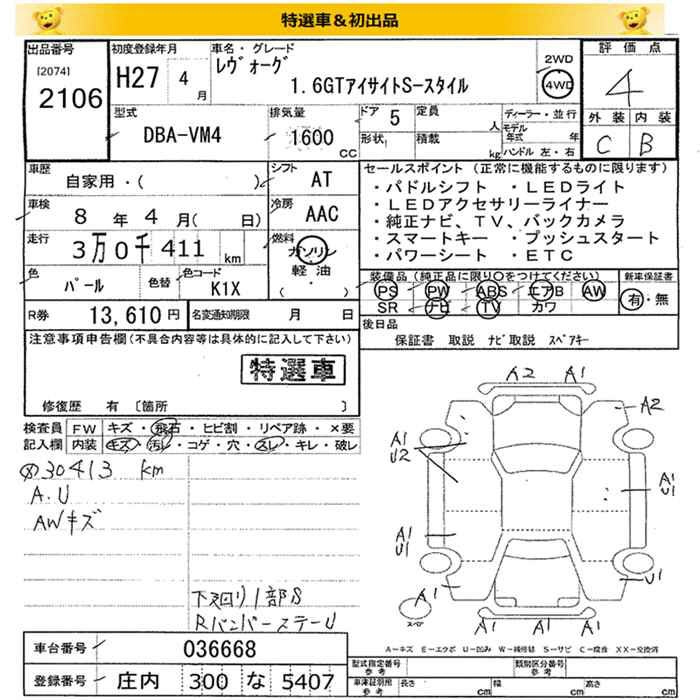 特選車＆初出品
出品番号 [2074] 2106
初度登録年月 H27 4月
車名・グレード レヴォーグ
1.6GTアイサイトS-スタイル
2WD 4WD
評価点 4
外装 C 内装 B
型式 DBA-VM4
排気量 1600 CC
ドア 5 定員 人
形状 積載 kg
ディーラー・並行
モデル年式 年
ハンドル 左・右
車歴 自家用・( )
シフト AT
車検 8年4月( 日)
冷房 AAC
走行 3万0千411 km
燃料 ガソリン 軽油 ( )
色 パール 色替
色コード K1X
R券 13,610円 名変通知期限 月 日
セールスポイント (正常に機能するものに限ります)
・パドルシフト ・LEDライト
・LEDアクセサリーライナー
・純正ナビ、TV、バックカメラ
・スマートキー ・プッシュスタート
・パワーシート ・ETC
装備品(純正品に限り〇をつけてください)
PS PW ABS エアB AW
SR ナビ TV カワ
新車保証書 有・無
後日品
保証書 取説 ナビ取説 スペアキー
注意事項申告欄(不具合内容等は具体的に記入して下さい)
特選車
修復歴 有 〔箇所 〕
検査員記入欄
FW キズ・飛石・ヒビ割・リペア跡・×要
内装 キズ・汚レ・コゲ・穴・スレ・キレ・破レ
30413 km
A.U
AWキズ
下廻り1部S
RバンパーステーU
A2 A1
A2
A1
U2
A1
U1
A1
U1
A1
U1
A1 A1 A1
スペア
A-キズ E-エクボ U-凹み W-補修跡 S-サビ C-腐食 XX-交換済
車台番号 036668
登録番号 庄内 300 な 5407
型式指定番号 参考
類別区分番号 参考
車庫証明用 参考 長さ cm 幅 cm 高さ cm